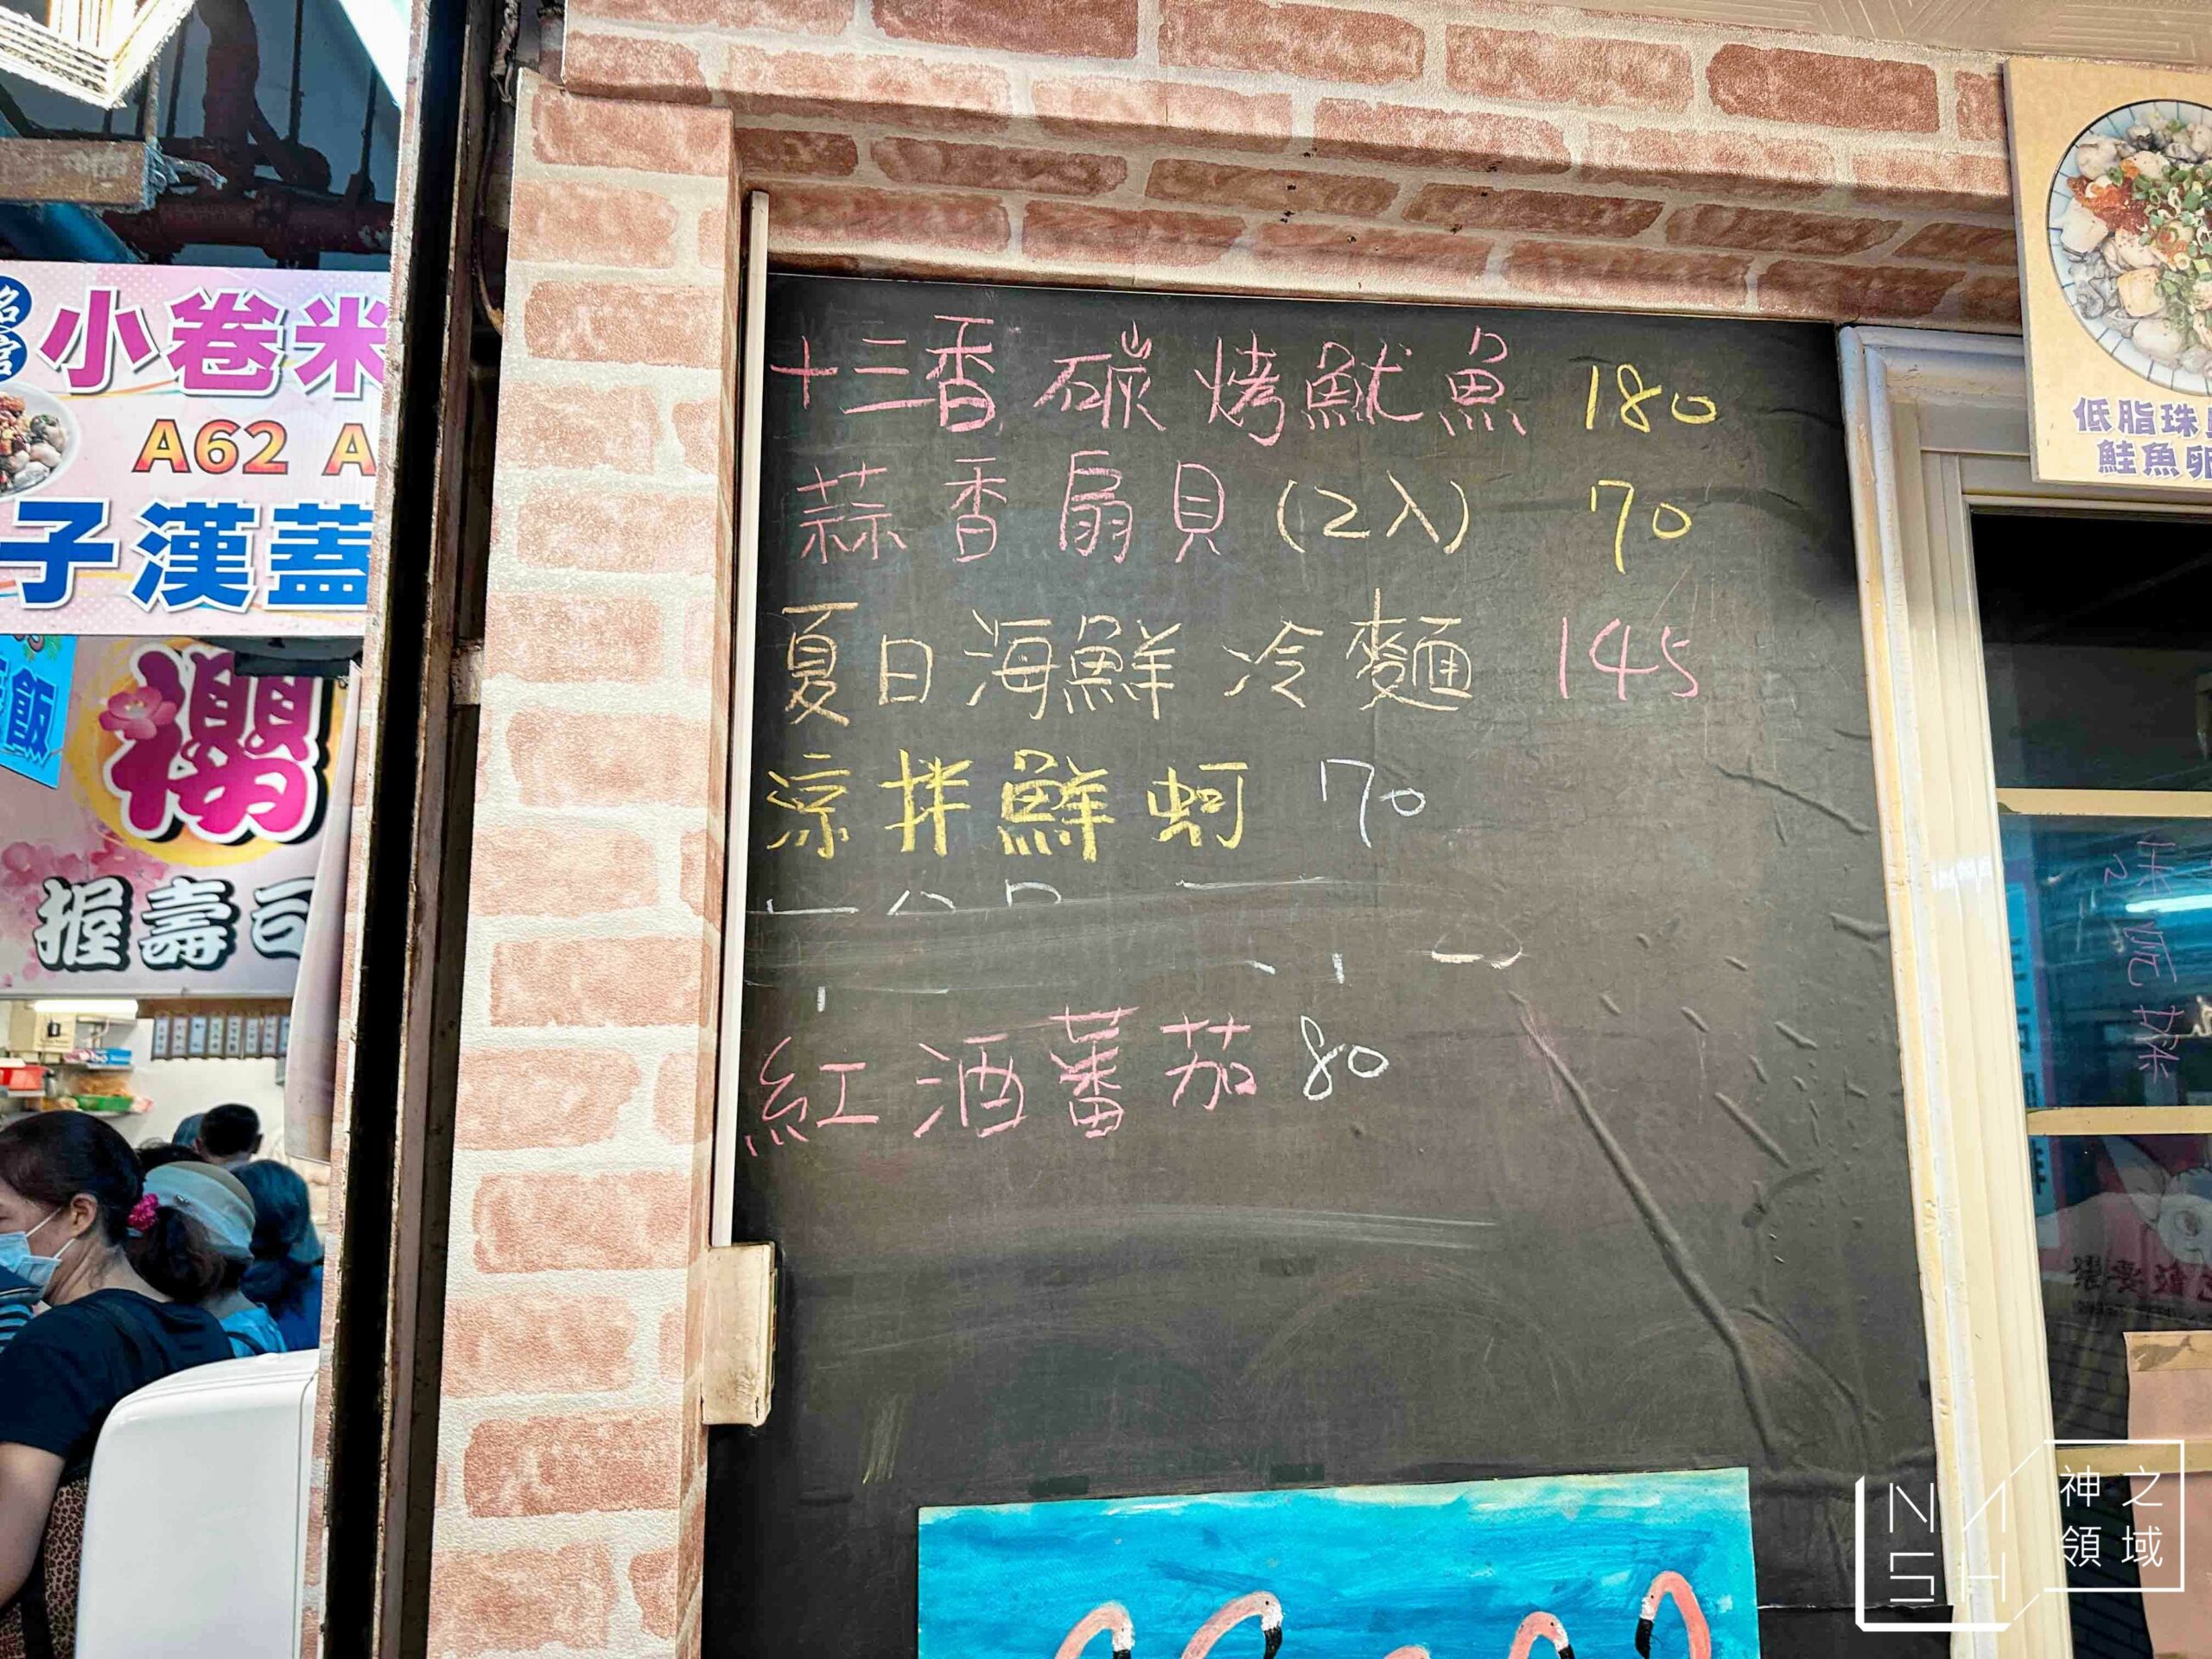 小卷米
A62 A
子漢蓋
飯
櫻
握壽司
十三香碳烤魷魚 180
蒜香扇貝(2入) 70
夏日海鮮冷麵 145
涼拌鮮蚵 70
紅酒蕃茄 80
低脂珠
鮭魚卵
NASH
神之
領域